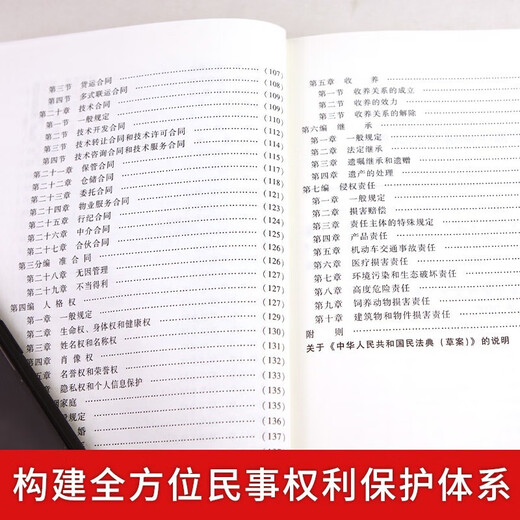 第三节 货运合同 (107)
第四节 多式联运合同 (108)
第二十章 技术合同 (109)
第一节 一般规定 (109)
第二节 技术开发合同 (110)
第三节 技术转让合同和技术许可合同 (112)
第四节 技术咨询合同和技术服务合同
第二十一章 保管合同
第二十二章 仓储合同
第二十三章 委托合同
第二十四章 物业服务合同
第二十五章 行纪合同
第二十六章 中介合同
第二十七章 合伙合同
第三分编 准合同
第二十八章 无因管理
第二十九章 不当得利
第四编 人格权
第一章 一般规定
第二章 生命权、身体权和健康权
第三章 姓名权和名称权
第四章 肖像权
第五章 名誉权和荣誉权
隐私权和个人信息保护
家庭
规定
婚
第五章 收养
第一节 收养关系的成立
第二节 收养的效力
第三节 收养关系的解除
第六编 继承
第一章 一般规定
第二章 法定继承
第三章 遗嘱继承和遗赠
第四章 遗产的处理
第七编 侵权责任
第一章 一般规定
第二章 损害赔偿
第三章 责任主体的特殊规定
第四章 产品责任
第五章 机动车交通事故责任
第六章 医疗损害责任
第七章 环境污染和生态破坏责任
第八章 高度危险责任
第九章 饲养动物损害责任
第十章 建筑物和物件损害责任
附则
关于《中华人民共和国民法典（草案）》的说明
构建全方位民事权利保护体系